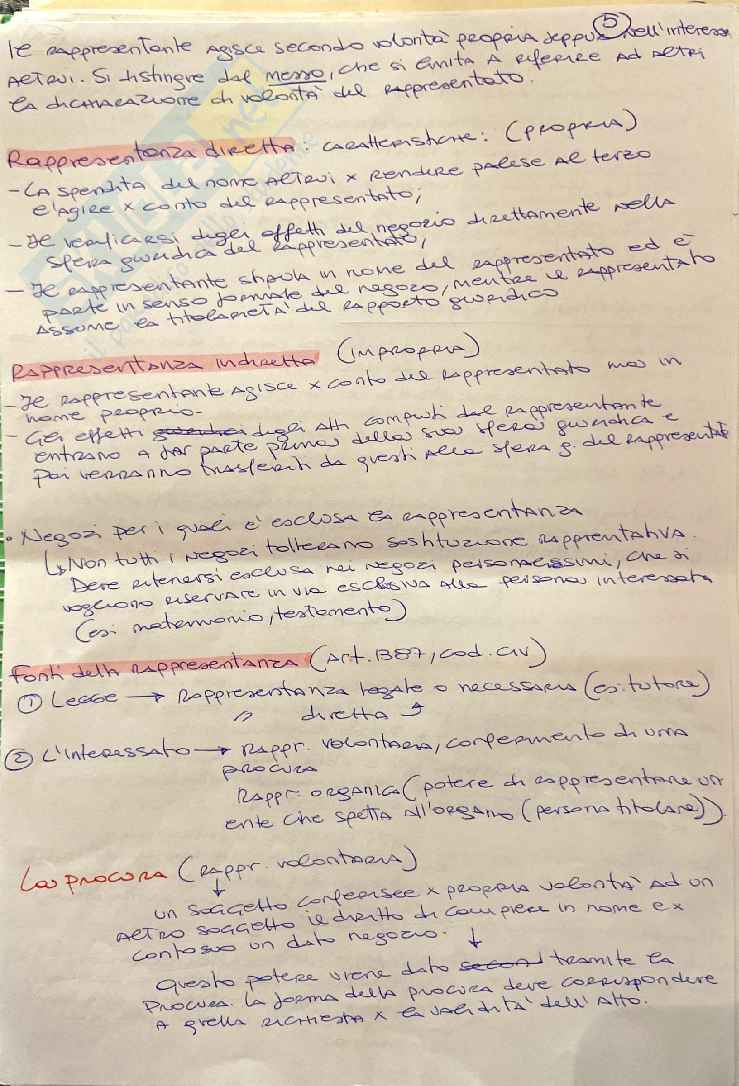 Il rappresentante agisce secondo volontà propria seppur nell'interesse
5
altrui. Si distingue dal messo, che si limita a riferire ad altri
la dichiarazione di volontà del rappresentato.
Rappresentanza diretta: caratteristiche: (propria)
- La spendita del nome altrui x rendere palese al terzo
e l'agire x conto del rappresentato;
- Il verificarsi degli effetti del negozio direttamente nella
sfera giuridica del rappresentato;
- Il rappresentante stipula in nome del rappresentato ed è
parte in senso formale del negozio, mentre il rappresentato
assume la titolarietà del rapporto giuridico
Rappresentanza indiretta (impropria)
- Il rappresentante agisce x conto del rappresentato ma in
nome proprio.
- Gli effetti degli atti compiuti dal rappresentante
entrano a far parte prima della sua sfera giuridica e
poi verranno trasferiti da questi alla sfera g. del rappresentato
• Negozi per i quali è esclusa la rappresentanza
↳ Non tutti i negozi tollerano sostituzione rapprentativa.
Deve ritenersi esclusa nei negozi personalissimi, che si
vogliono riservare in via esclusiva alla persona interessata
(es: matrimonio, testamento)
Fonti della rappresentanza (art. 1387, cod. civ)
① Legge → Rappresentanza legale o necessaria (es: tutore)
" diretta ↑
② L'interessato → Rappr. volontaria, conferimento di una
procura
Rappr. organica (potere di rappresentare un
ente che spetta all'organo (persona titolare)).
La procura (rappr. volontaria)
↓
un soggetto conferisce x propria volontà ad un
altro soggetto il diritto di compiere in nome e x
conto suo un dato negozio. ↓
Questo potere viene dato tramite la
procura. La forma della procura deve corrispondere
a quella richiesta x la validità dell'atto.